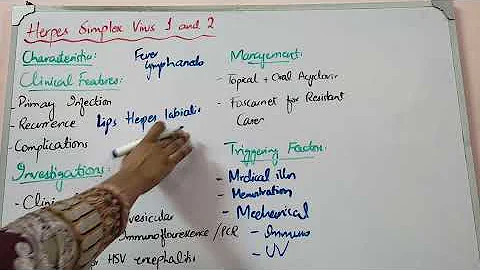 Herpes Simplex Virus 1 and 2
Characteristic:
Fever
lymphanode
Clinical Features:
- Primary Infection
- Recurrence Lips Herpes labialis
- Complications
Investigations:
- Clini
vesicular
Immunoflouresence / PCR
HSV encephalitis
Management:
- Topical + Oral Acyclovir
- Foscarnet for Resistant
Cases
Triggering Factors:
- Medical illn
- Menstration
- Mechanical
- Immuno
- UV